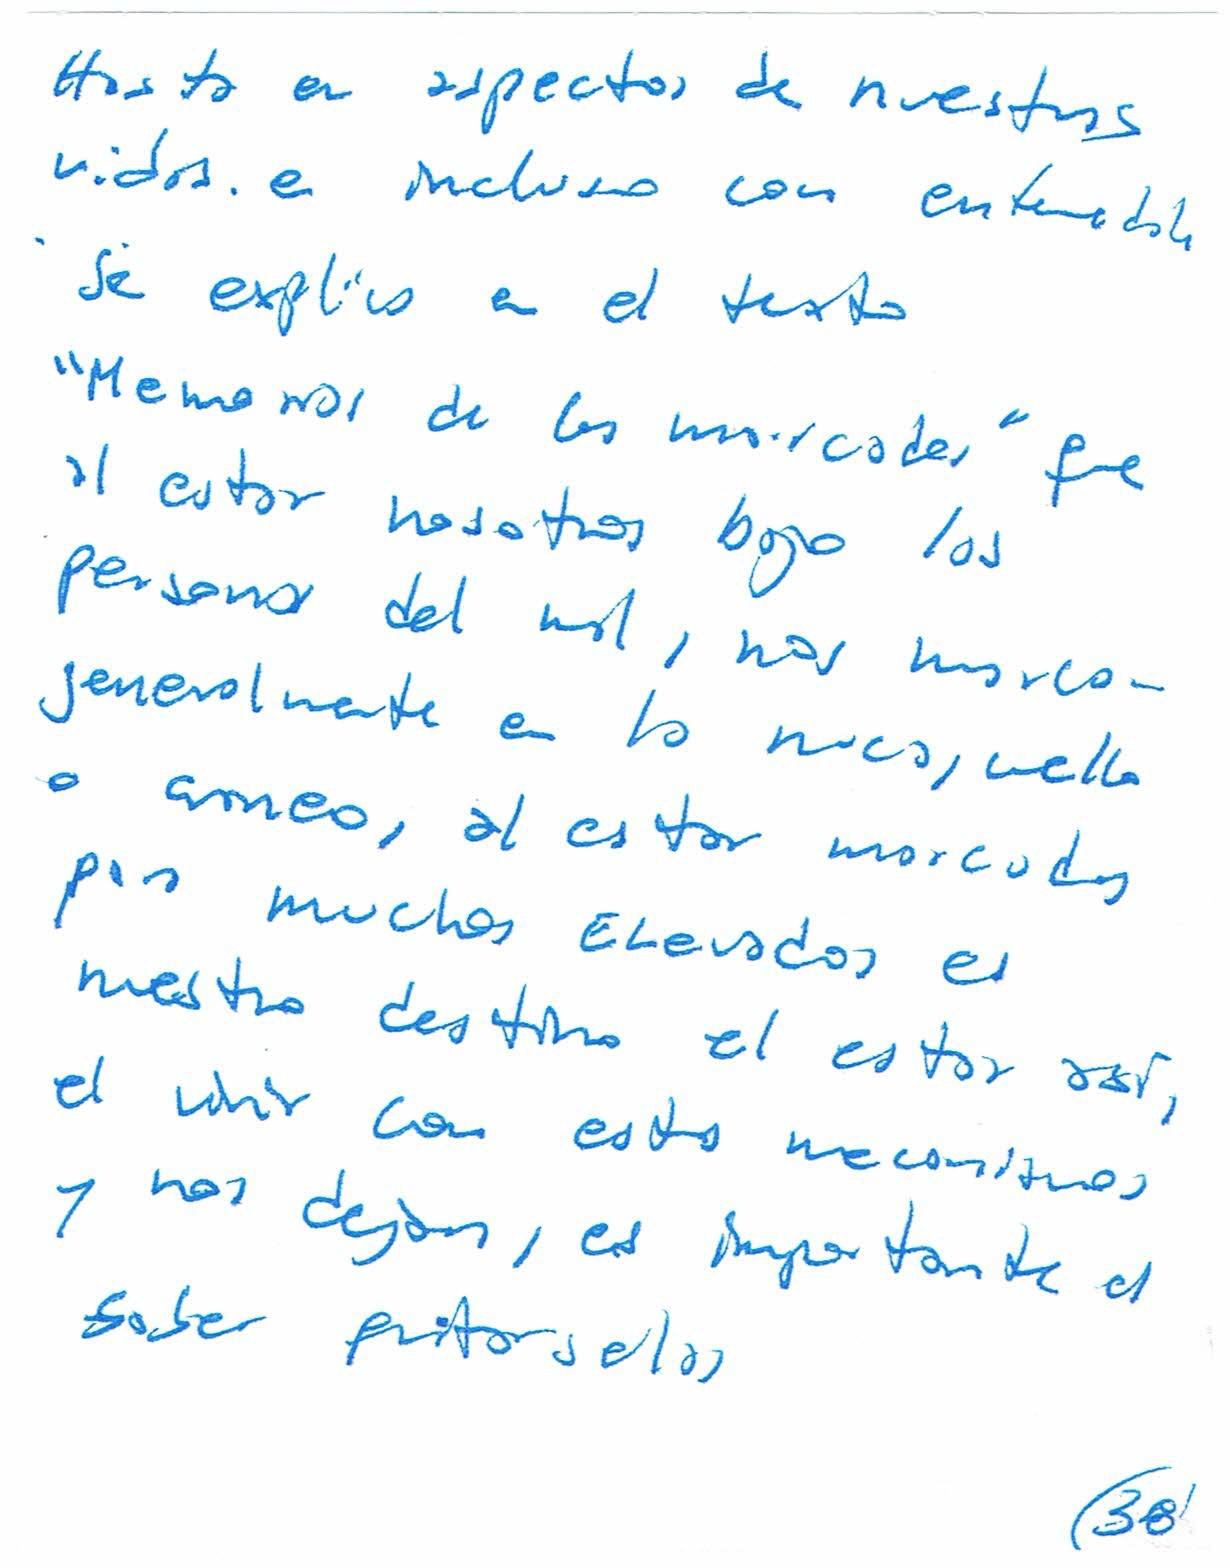 Hasta en aspectos de nuestras
vidas. e incluso con
Se explica en el texto
"Memorias de los marcados" que
al estar nosotros bajo las
personas del mal, nos marcan
generalmente en la nuca, cuello
o craneo, al estar marcados
por muchos ELevados es
nuestro destino el estar así,
el vivir con estos mecanismos
y nos dejan, es importante el
saber quitarselos
(38